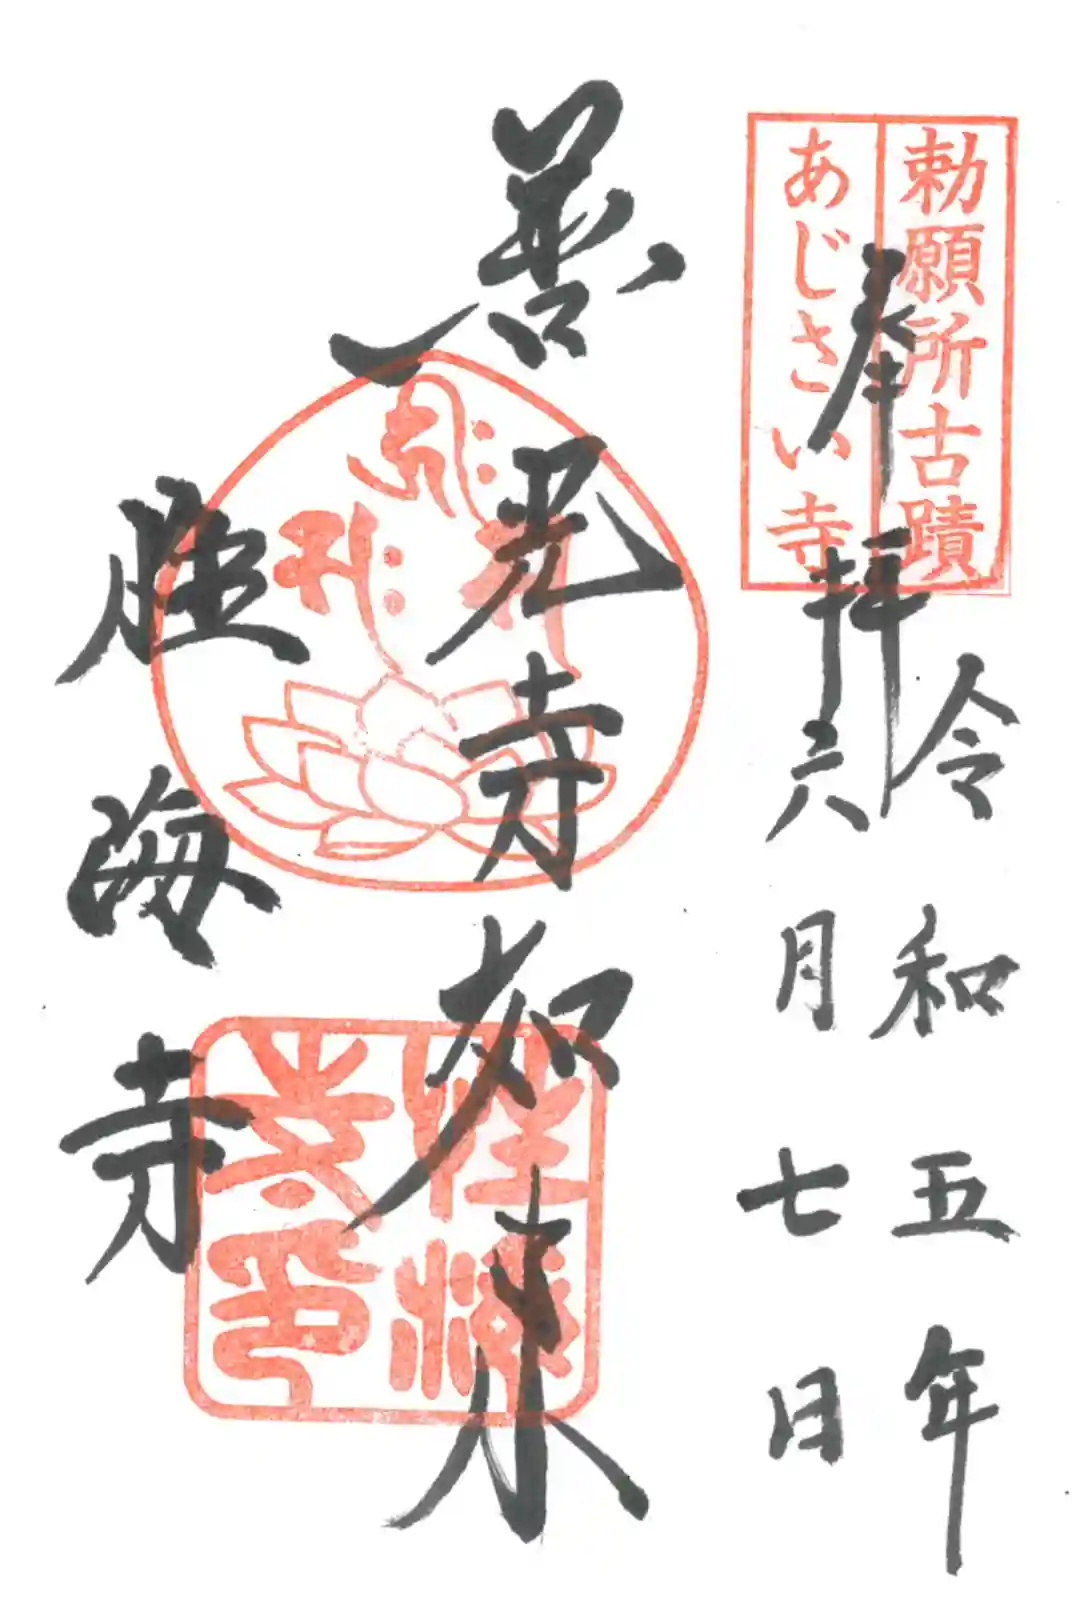 勅願所古蹟
あじさい寺
奉拝
令和五年
六月七日
善光寺如来
性海寺
性海
寺印